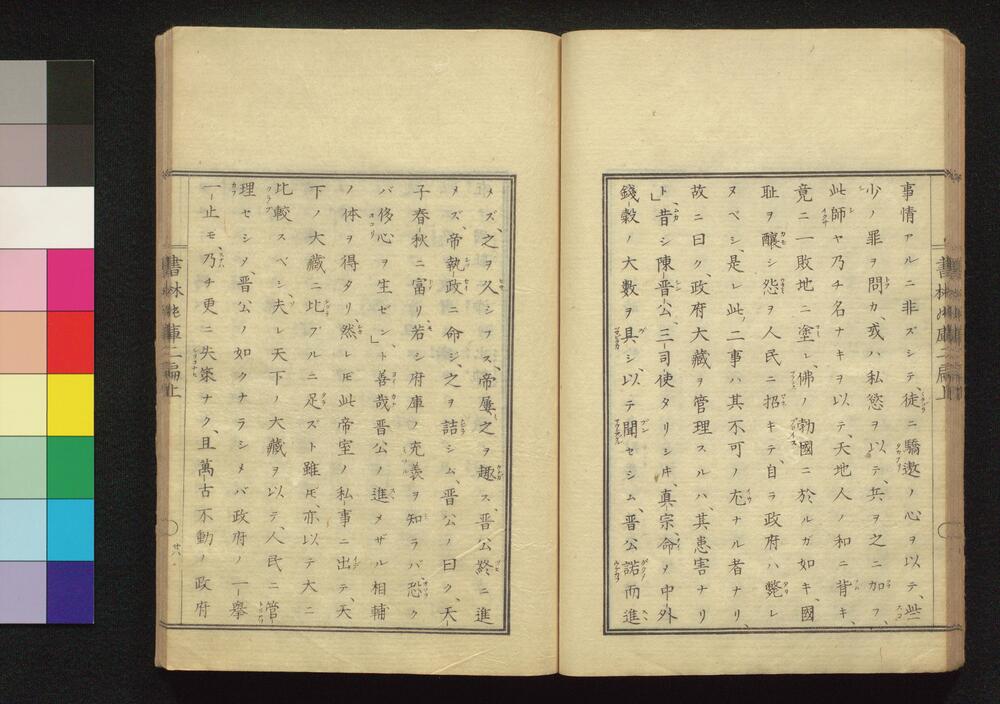 事情アルニ非ズシテ、徒ニ驕遨ノ心ヲ以テ、些
少ノ罪ヲ問カ、或ハ私慾ヲ以テ、兵ヲ之ニ加フ、
此師ヤ乃チ名ナキヲ以テ、天地人ノ和ニ背キ、
竟ニ一敗地ニ塗レ、佛ノ勃國ニ於ルガ如キ、國
耻ヲ釀シ怨ヲ人民ニ招キテ、自ラ政府ハ斃レ
ヌベシ、是レ此ノ二事ハ其不可ノ尤ナル者ナリ、
故ニ曰ク、政府大藏ヲ管理スルハ、其患害ナリ
ト」昔シ陳晋公、三司使タリシ𪜈、真宗、命ノ中外
錢穀ノ大數ヲ具シ、以テ聞セシム、晋公諾而進
メズ、之ヲ久シフス、帝屢之ヲ趣ス、晋公終ニ進
メズ、帝執政ニ命シ、之ヲ詰シム、晋公ノ曰ク、天
子春秋ニ富リ、若シ府庫ノ充羨ヲ知ラバ、恐ク
バ侈心ヲ生ゼン」ト善哉晋公ノ進メザル相輔
ノ体ヲ得タリ、然レ𪜈此帝室ノ私事ニ出テ、天
下ノ大藏ニ比ブルニ足ズト雖𪜈、亦以テ大ニ
比較スベシ、夫レ天下ノ大藏ヲ以テ、人民ニ管
理セシメ、晋公ノ如クナラシメバ政府ノ一擧
一止モ、乃チ更ニ失策ナク、且萬古不動ノ政府
廿八